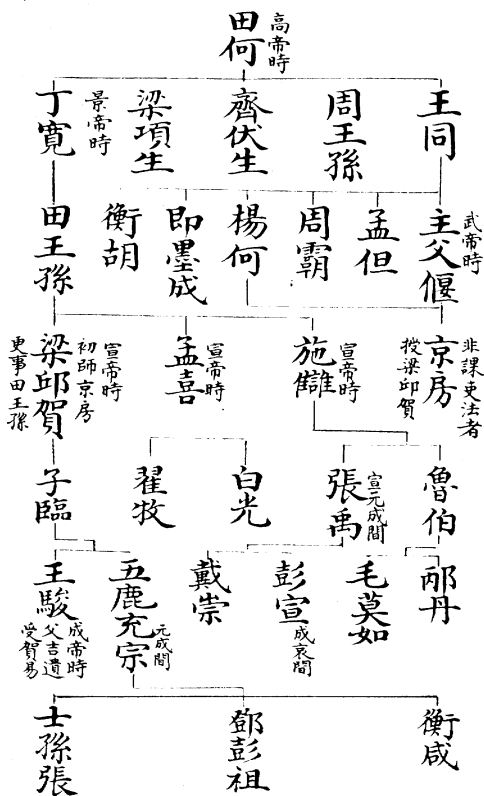 田何
高帝時
王同
周王孫
齊伏生
梁項生
丁寬
景帝時
主父偃
武帝時
孟但
周霸
楊何
即墨成
衡胡
田王孫
京房
非課吏法者
授梁邱賀
施讎
宣帝時
孟喜
宣帝時
梁邱賀
宣帝時
初師京房
更事田王孫
魯伯
張禹
宣元成間
白光
翟牧
子臨
邴丹
毛莫如
彭宣
成哀間
戴崇
五鹿充宗
元成間
王駿
成帝時
父吉遺
受賀易
衡咸
鄧彭祖
士孫張